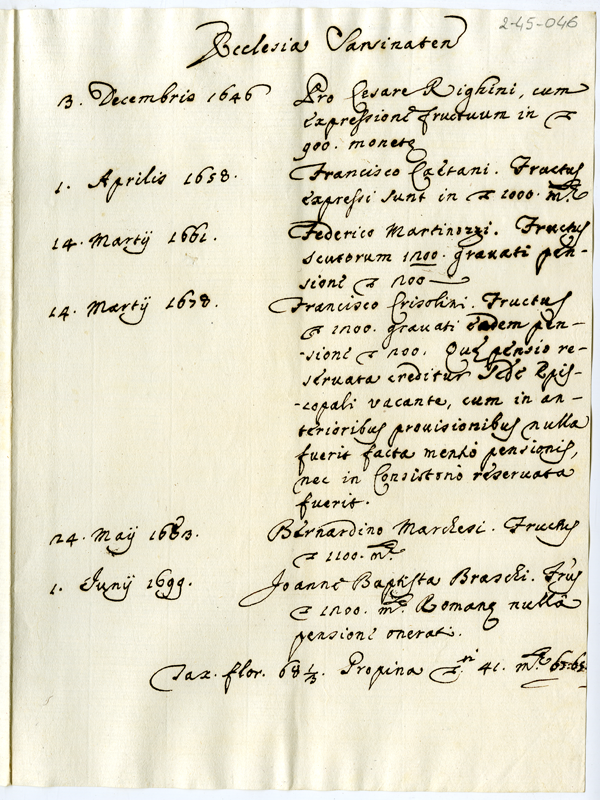 2-45-046
Ecclesia Sarsinaten
3. Decembris 1646 Pro Cesare Righini, cum
expressione fructuum in ▽
900. monetę
1. Aprilis 1658. Francisco Caetani. Fructus
expressi sunt in ▽ 1000. mtę
14. Martij 1661. Federico Martinozzi. Fructus
scutorum 1200. gravati pen-
sione ▽ 200
14. Martij 1678. Francisco Crisolini. Fructus
▽ 1200. gravati eadem pen-
-sione ▽ 200. Quę pensio re-
servata creditur Sede Epis-
-copali vacante, cum in an-
terioribus provisionibus nulla
fuerit facta mentio pensionis,
nec in Consistorio reservata
fuerit.
24. Maij 1683. Bernardino Marchesi. Fructus
▽ 1100. mtę
1. Junij 1699. Joanne Baptista Braschi. Frus
▽ 1200. mtę Romanę nulla
pensione onerati.
Tax. flor. 68 1/3. Propina ▽ri 41. mtę